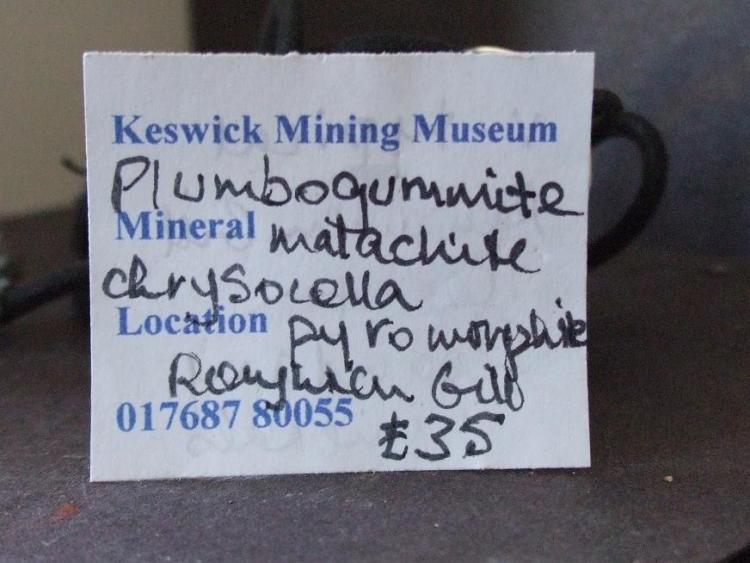 Keswick Mining Museum
Plumbogummite
Mineral malachite
chrysocolla
Location pyromorphite
Roughten Gill
017687 80055
£35